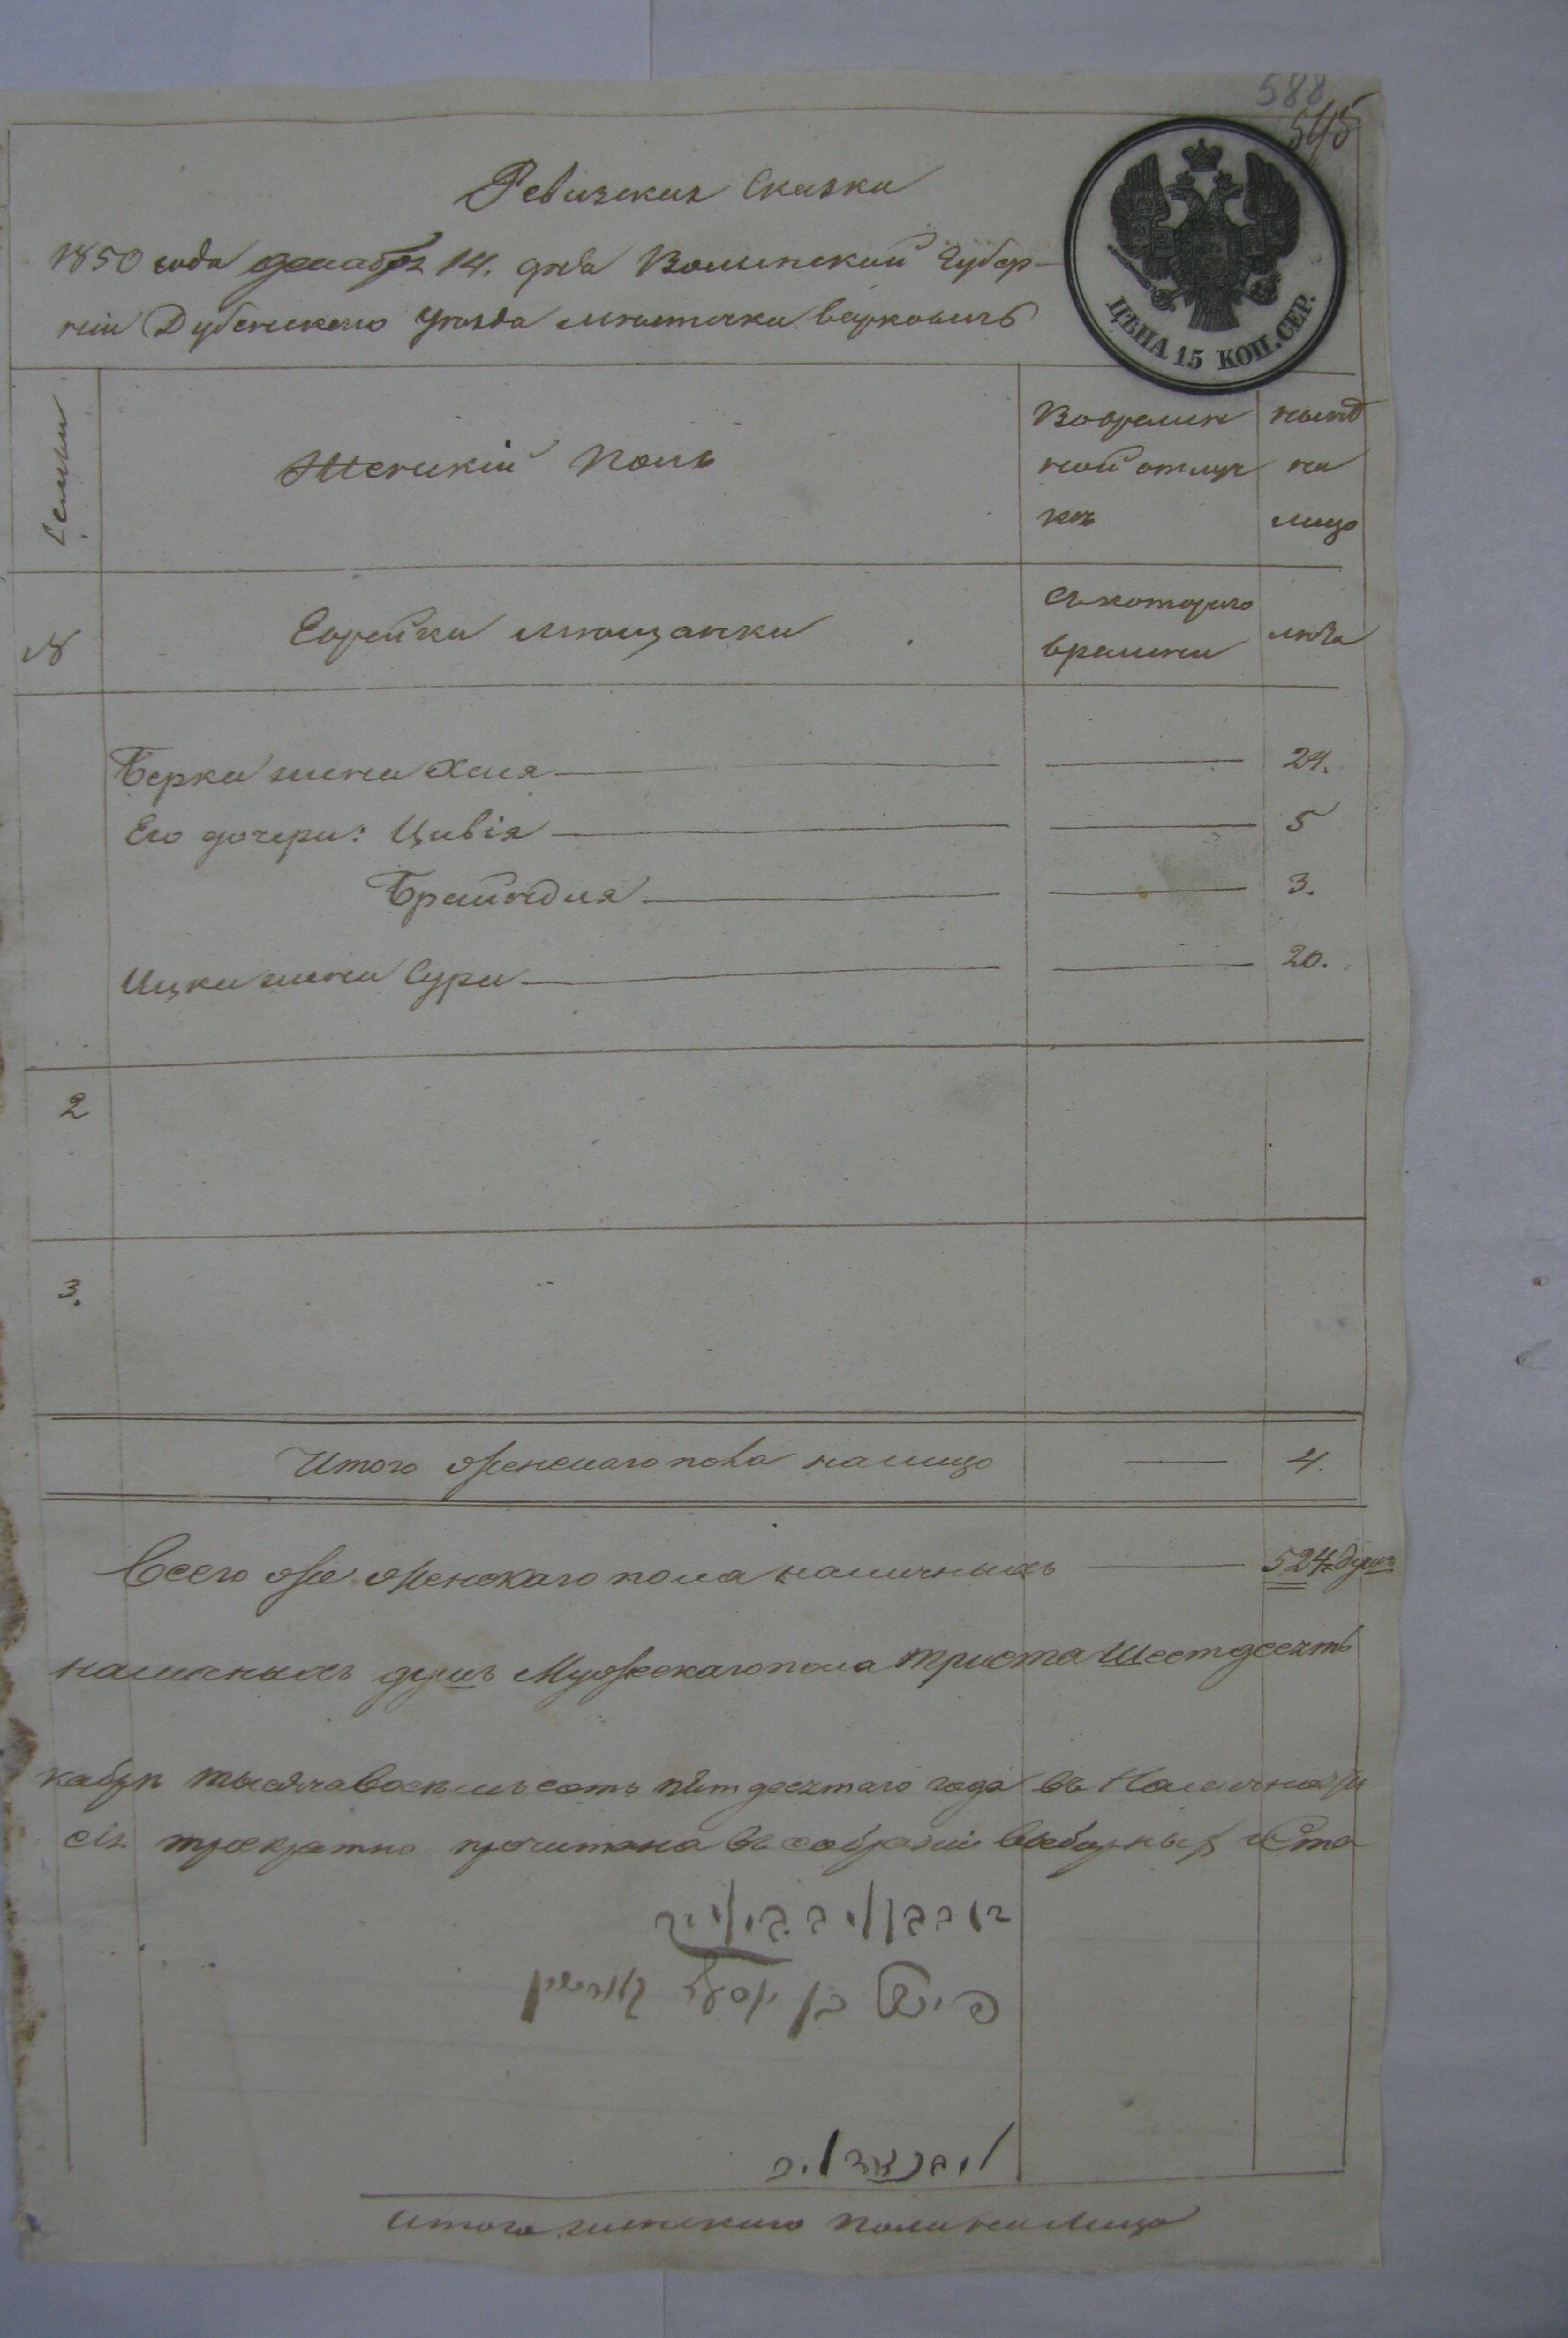 588
545
Ревизская Сказка
1850 года декабря 14. дня Волынской Губер-
нiи Дубенского уѣзда мѣстечка Варковичъ
ЦѢНА 15 КОП. СЕР.
Семьи
Женскiй Полъ
Вовремен
ной отлуч
кѣ
нынѣ
на
лицо
№
Еврейки мѣщанки
съ котораго
времени
лѣта
Берка жена Хая 24.
Его дочери: Цивiя 5
Брайндля 3.
Ицка жена Сура 20.
2
3.
Итого женскаго пола налицо 4.
Всего же женскаго пола наличныхъ 524 душъ
наличныхъ душъ Мужескаго пола триста шестдесять
кабря тысяча восемьсотъ пятдесятаго года въ
сiя троекратно прочитана въ собранiи выборныхъ и Ста
בן
Итого женскаго пола на лицо